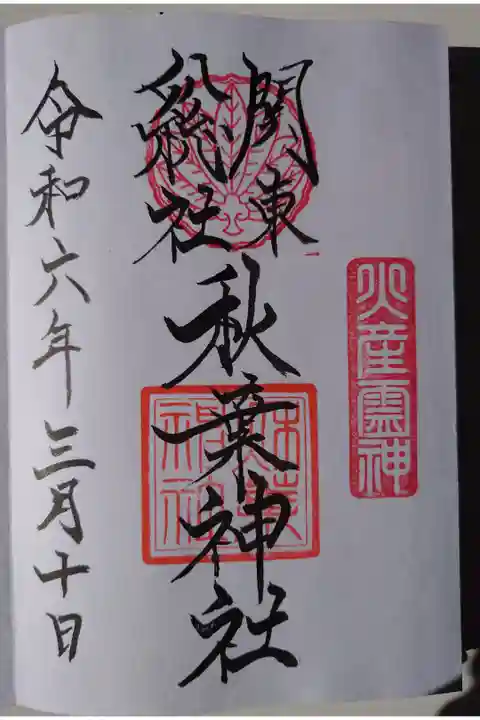 火産霊神
関東
総社
秋葉神社
秋葉
神社
令和六年三月十日